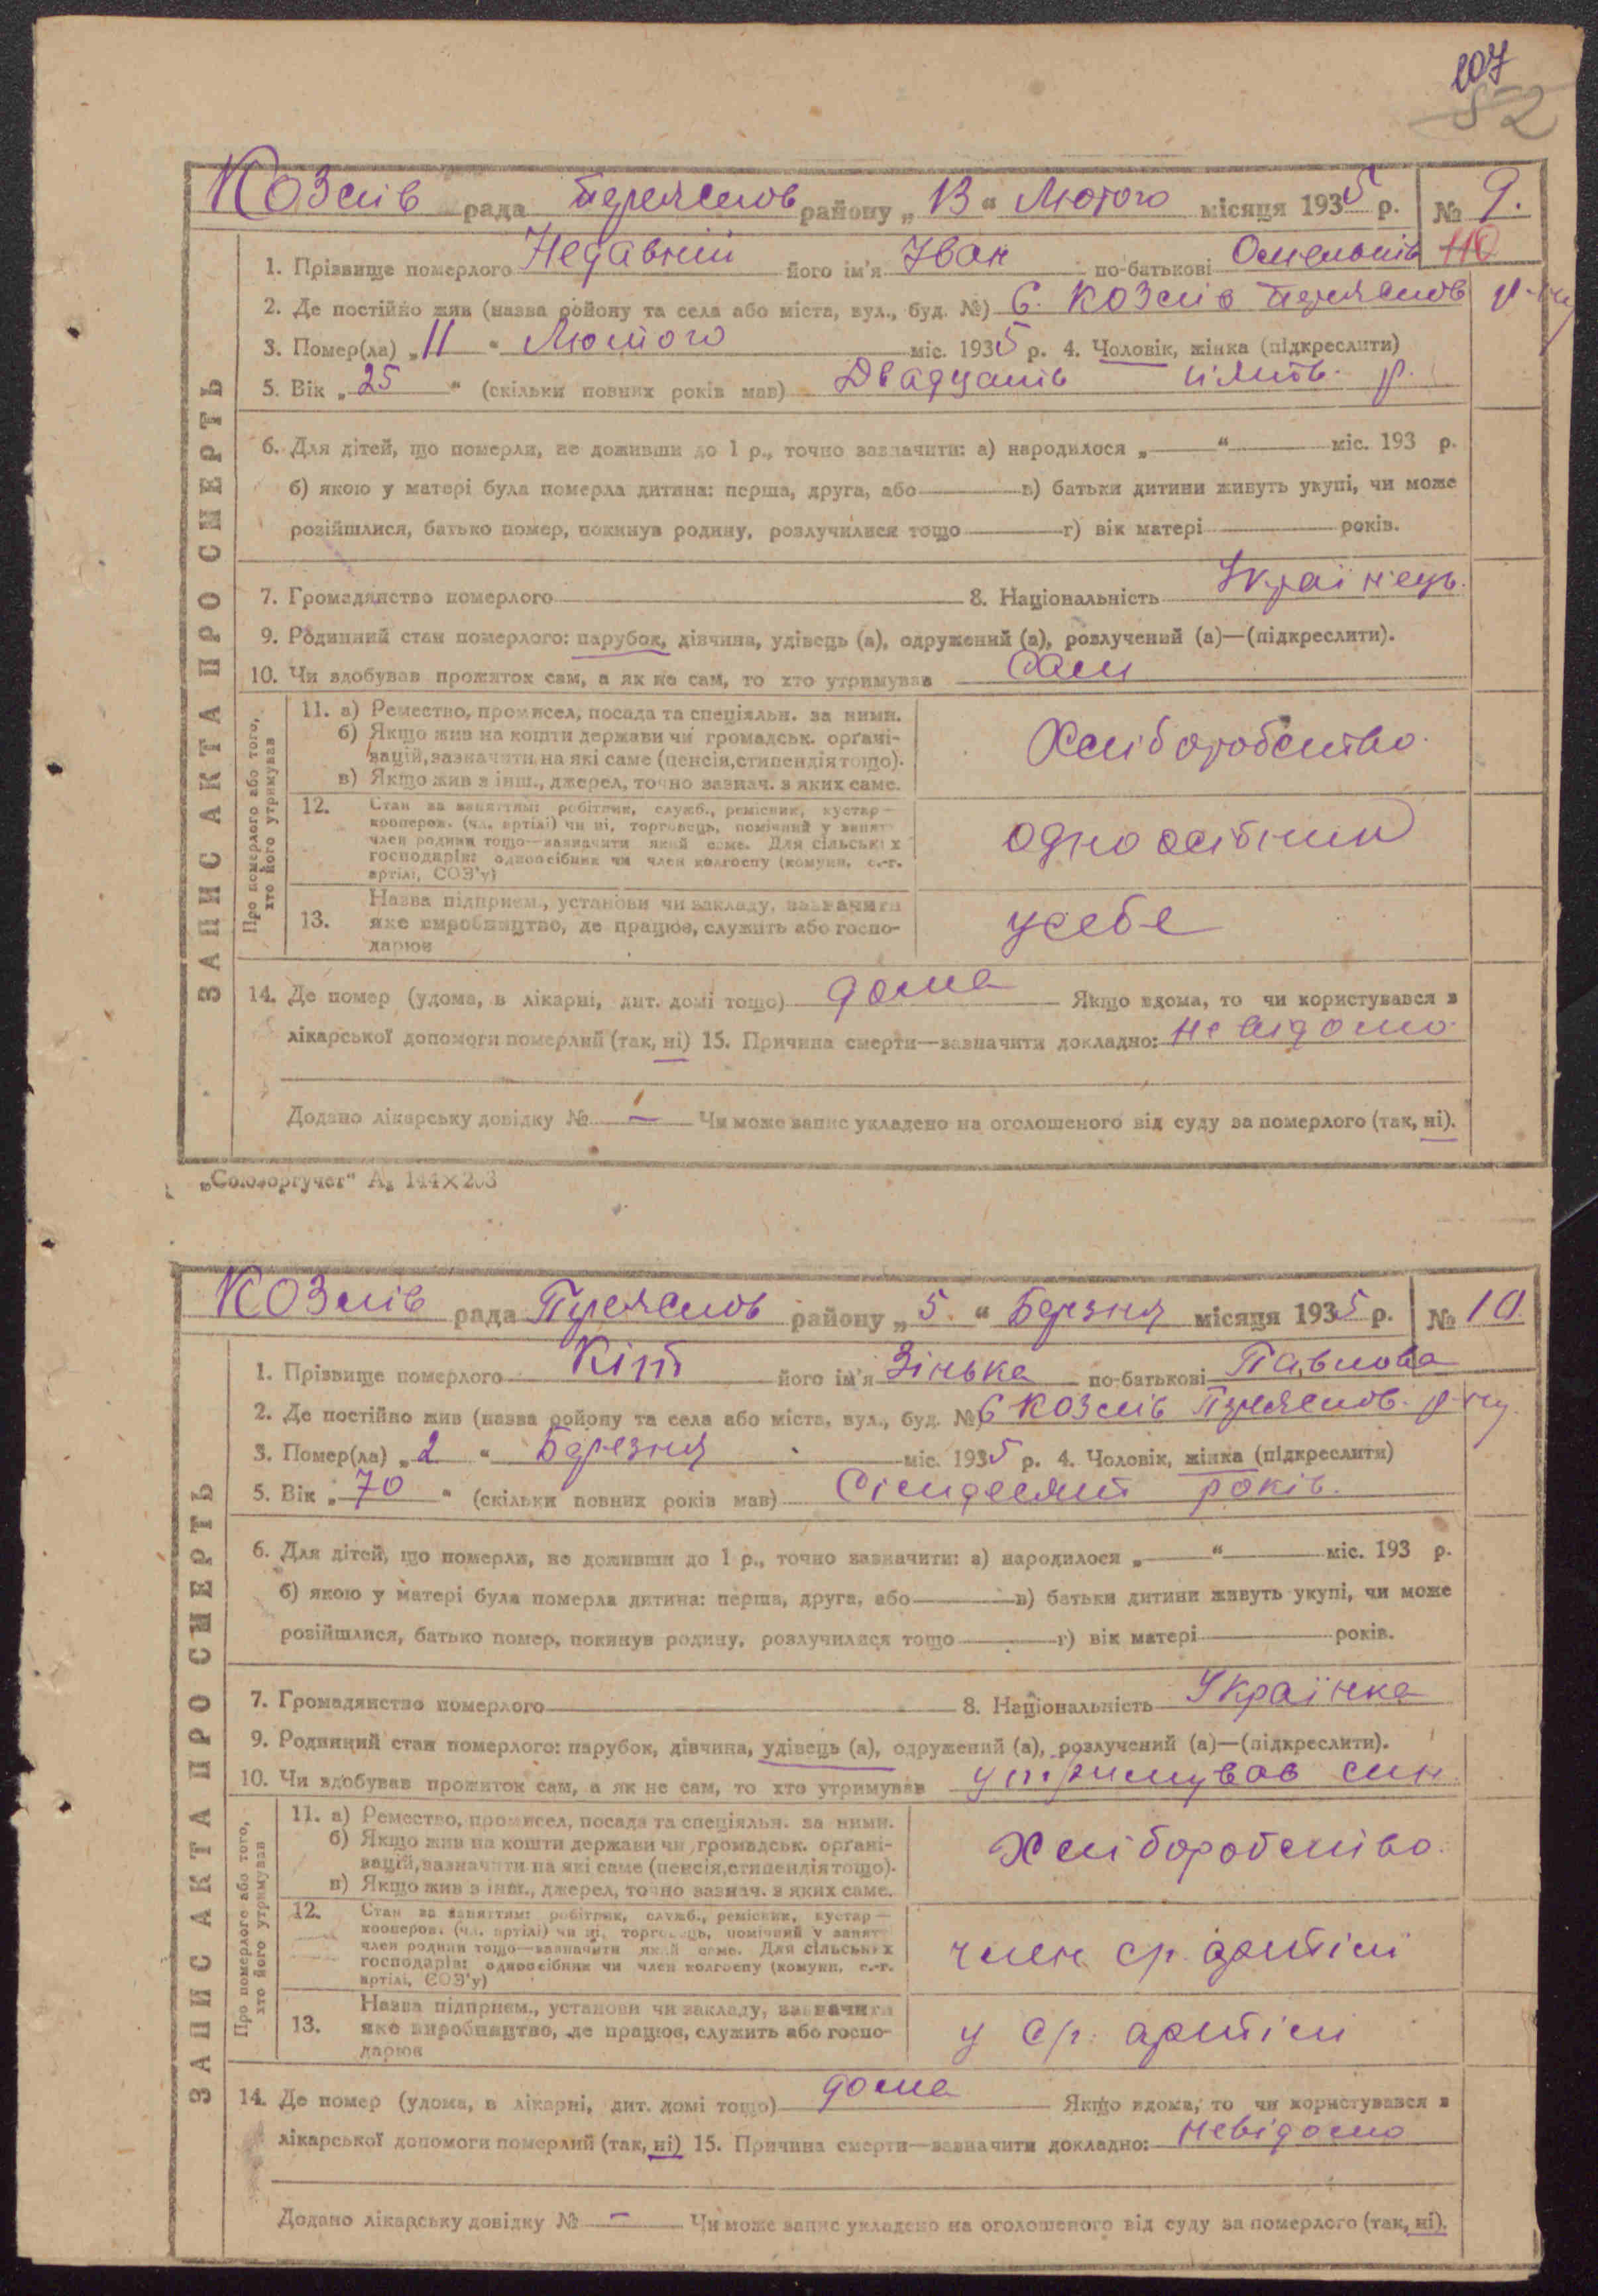 107
52
Козлів рада Переяслов району „13“ Лютого місяця 1935 р. № 9.
1. Прізвище померлого Недавній його ім'я Іван по-батькові Омельків 110
2. Де постійно жив (назва району та села або міста, вул., буд. №) С. Козлів Переяслов р-ну
3. Помер(ла) „11“ Лютого міс. 1935 р. 4. Чоловік, жінка (підкреслити)
5. Вік „25“ (скільки повних років мав) Двадцать пять. р.
6. Для дітей, що померли, не доживши до 1 р., точно зазначити: а) народилося „—“ міс. 193 р.
б) якою у матері була померла дитина: перша, друга, або — в) батьки дитини живуть укупі, чи може
розійшлися, батько помер, покинув родину, розлучилися тощо — г) вік матері — років.
7. Громадянство померлого — 8. Національність Українець.
9. Родинний стан померлого: парубок, дівчина, удівець (а), одружений (а), розлучений (а)—(підкреслити).
10. Чи здобував прожиток сам, а як не сам, то хто утримував Сам
ЗАПИС АКТА ПРО СМЕРТЬ
Про померлого або того,
хто його утримував
11. а) Ремество, промисел, посада та спеціяльн. за ними.
б) Якщо жив на кошти держави чи громадськ. органі-
зацій, зазначити на які саме (пенсія, стипендія тощо).
в) Якщо жив з інш., джерел, точно зазнач. з яких саме.
Хліборобство.
12. Стан за заняттям: робітник, служб., ремісник, кустар—
кооперов. (чл. артілі) чи ні, торговець, помічний у занят
член родини тощо—зазначити який саме. Для сільських
господарів: одноосібник чи член колгоспу (комуни, с.-г.
артілі, СОЗ'у)
одноосібник
13. Назва підприєм., установи чи закладу, зазначити
яке виробництво, де працює, служить або госпо-
дарює
усебе
14. Де помер (удома, в лікарні, дит. домі тощо) дома Якщо вдома, то чи користувався з
лікарської допомоги померлий (так, ні) 15. Причина смерти—зазначити докладно: не відомо.
Додано лікарську довідку № — Чи може запис укладено на оголошеного від суду за померлого (так, ні).
„Союзоргучет“ А₅ 144×203
Козлів рада Переяслов району „5.“ Березня місяця 1935 р. № 10.
1. Прізвище померлого Кіт його ім'я Зінька по-батькові Павлова
2. Де постійно жив (назва району та села або міста, вул., буд. №) С Козлів Переяслов. р-ну.
3. Помер(ла) „2“ Березня міс. 1935 р. 4. Чоловік, жінка (підкреслити)
5. Вік „70“ (скільки повних років мав) Сімдесят років.
6. Для дітей, що померли, не доживши до 1 р., точно зазначити: а) народилося „—“ міс. 193 р.
б) якою у матері була померла дитина: перша, друга, або — в) батьки дитини живуть укупі, чи може
розійшлися, батько помер, покинув родину, розлучилися тощо — г) вік матері — років.
7. Громадянство померлого — 8. Національність Українка
9. Родинний стан померлого: парубок, дівчина, удівець (а), одружений (а), розлучений (а)—(підкреслити).
10. Чи здобував прожиток сам, а як не сам, то хто утримував утримував син.
ЗАПИС АКТА ПРО СМЕРТЬ
Про померлого або того,
хто його утримував
11. а) Ремество, промисел, посада та спеціяльн. за ними.
б) Якщо жив на кошти держави чи громадськ. органі-
зацій, зазначити на які саме (пенсія, стипендія тощо).
в) Якщо жив з інш., джерел, точно зазнач. з яких саме.
Хліборобство.
12. Стан за заняттям: робітник, служб., ремісник, кустар—
кооперов. (чл. артілі) чи ні, торговець, помічний у занят
член родини тощо—зазначити який саме. Для сільських
господарів: одноосібник чи член колгоспу (комуни, с.-г.
артілі, СОЗ'у)
член ср. артілі
13. Назва підприєм., установи чи закладу, зазначити
яке виробництво, де працює, служить або госпо-
дарює
у ср. артілі
14. Де помер (удома, в лікарні, дит. домі тощо) дома Якщо вдома, то чи користувався з
лікарської допомоги померлий (так, ні) 15. Причина смерти—зазначити докладно: невідомо
Додано лікарську довідку № — Чи може запис укладено на оголошеного від суду за померлого (так, ні).